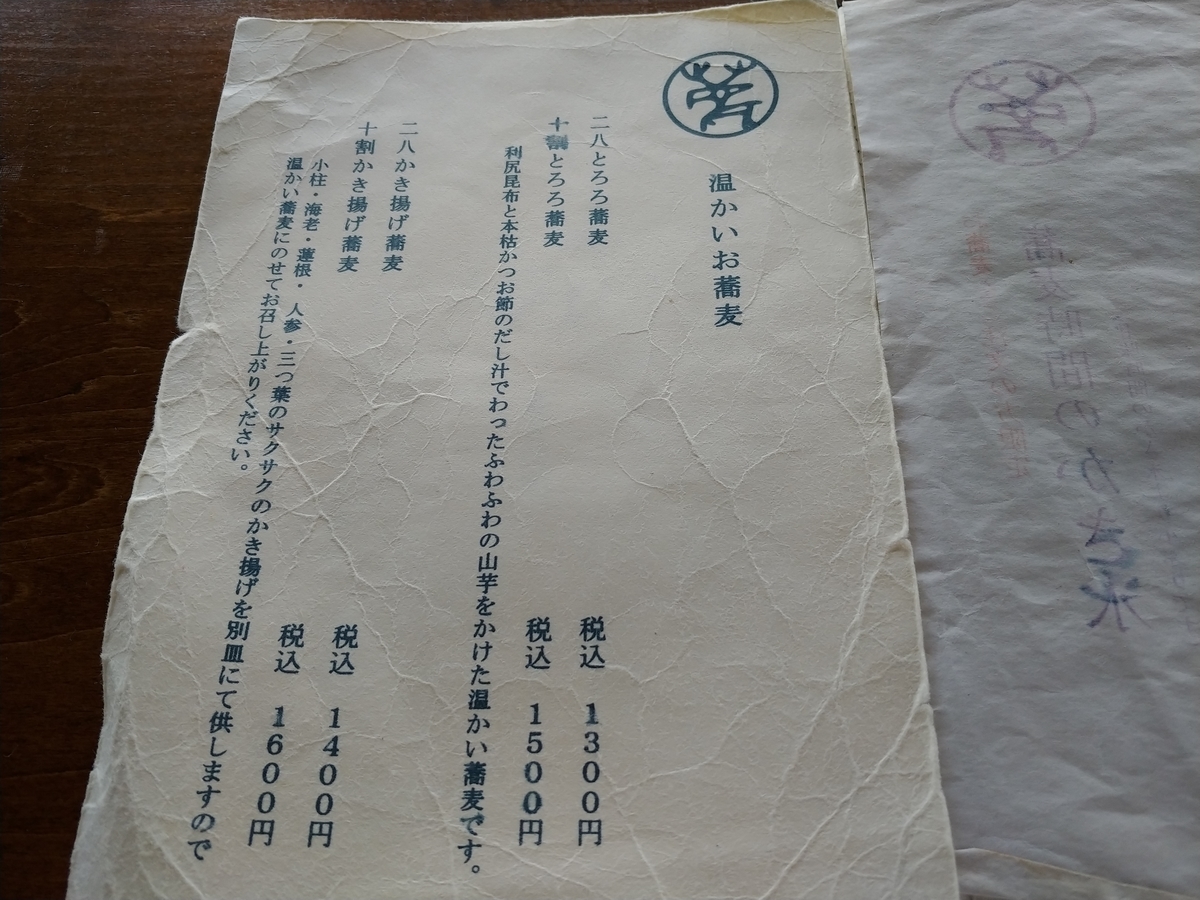 温かいお蕎麦
二八とろろ蕎麦 税込 1300円
十割とろろ蕎麦 税込 1500円
利尻昆布と本枯かつお節のだし汁でわったふわふわの山芋をかけた温かい蕎麦です。
二八かき揚げ蕎麦 税込 1400円
十割かき揚げ蕎麦 税込 1600円
小柱・海老・蓮根・人参・三つ葉のサクサクのかき揚げを別皿にて供しますので
温かい蕎麦にのせてお召し上がりください。